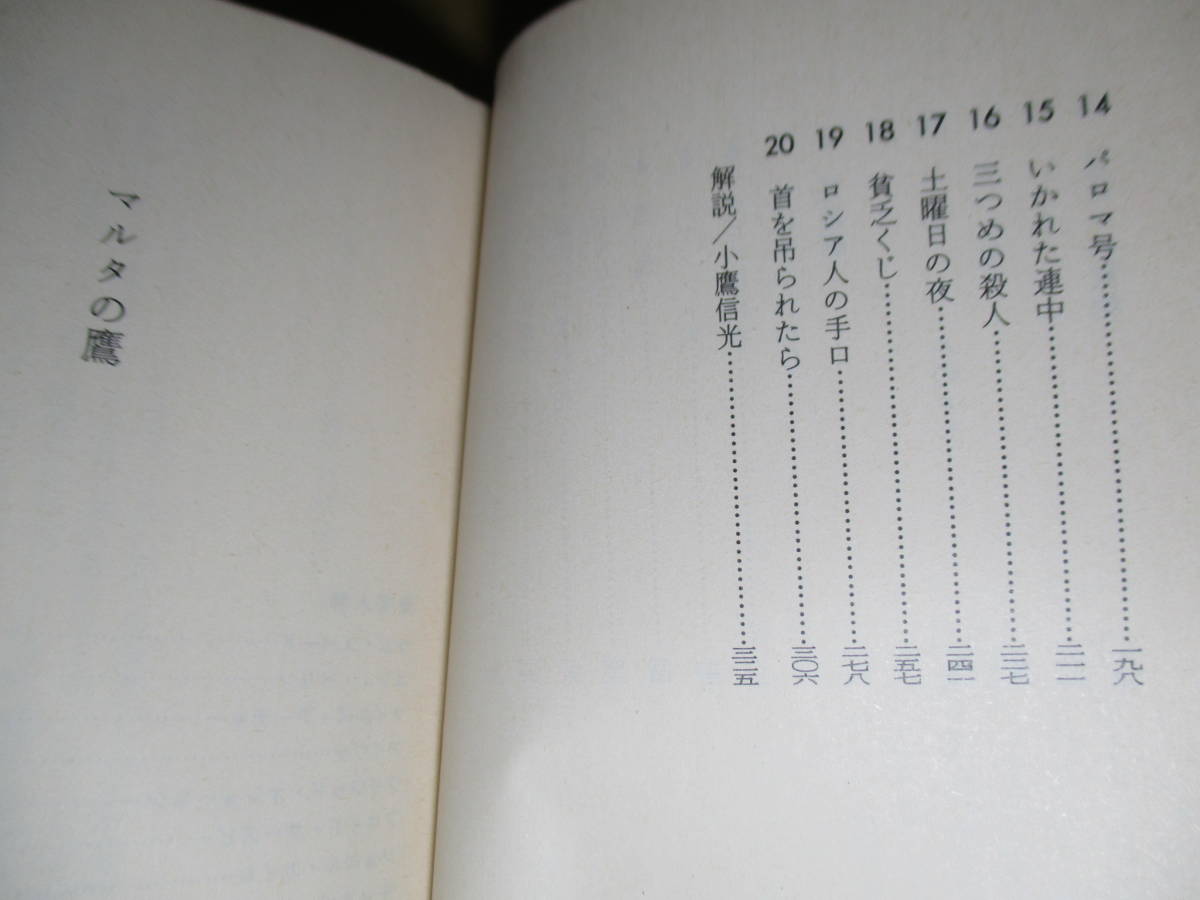 14 パロマ号……一九八
15 いかれた連中……二一一
16 三つめの殺人……二二七
17 土曜日の夜……二四一
18 貧乏くじ……二五七
19 ロシア人の手口……二七八
20 首を吊られたら……三〇六
解説／小鷹信光……三二五
マルタの鷹